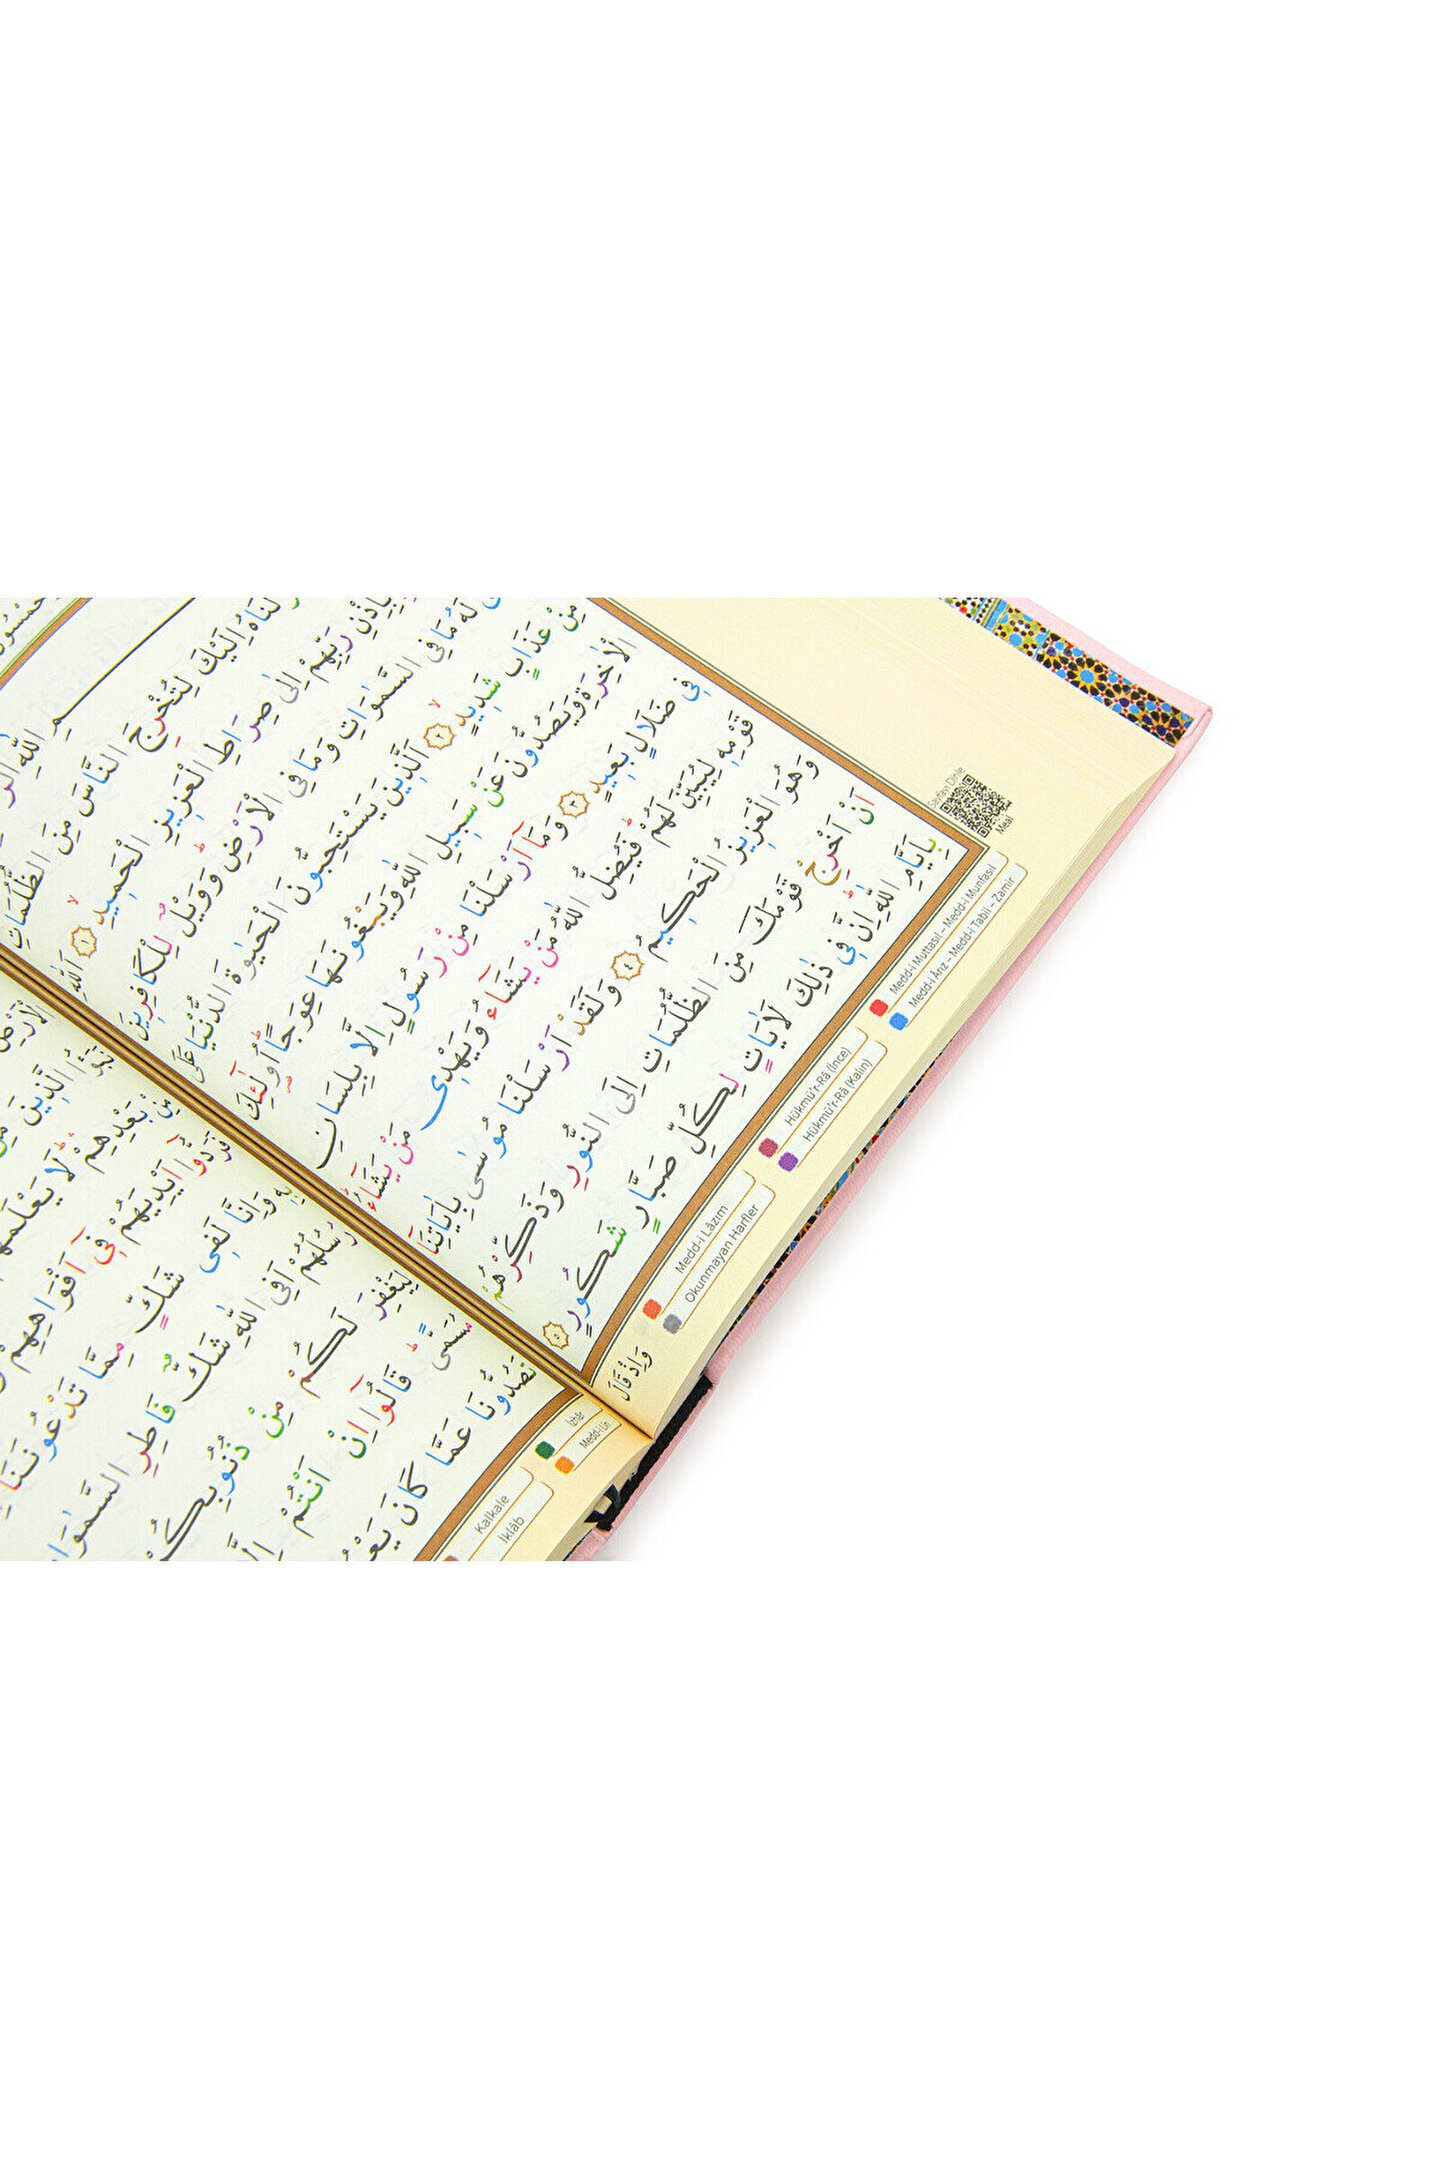 لْنَاهُ اِلَيْكَ لِتُخْرِجَ النَّاسَ مِنَ الظُّلُمَاتِ
بِاِذْنِ رَبِّهِمْ اِلٰى صِرَاطِ الْعَزِيزِ الْحَمِيدِ ﴿١﴾ اَللّٰهِ
لَهُ مَا فِى السَّمٰوَاتِ وَمَا فِى الْاَرْضِ وَوَيْلٌ لِلْكَافِرِينَ
مِنْ عَذَابٍ شَدِيدٍ ﴿٢﴾ اَلَّذِينَ يَسْتَحِبُّونَ الْحَيٰوةَ الدُّنْيَا عَلَى
الْاٰخِرَةِ وَيَصُدُّونَ عَنْ سَبِيلِ اللّٰهِ وَيَبْغُونَهَا عِوَجًا اُولٰٓئِكَ
فِى ضَلَالٍ بَعِيدٍ ﴿٣﴾ وَمَٓا اَرْسَلْنَا مِنْ رَسُولٍ اِلَّا بِلِسَانِ
قَوْمِهِ لِيُبَيِّنَ لَهُمْ فَيُضِلُّ اللّٰهُ مَنْ يَشَٓاءُ وَيَهْدِى مَنْ يَشَٓاءُ
وَهُوَ الْعَزِيزُ الْحَكِيمُ ﴿٤﴾ وَلَقَدْ اَرْسَلْنَا مُوسٰى بِاٰيَاتِنَٓا
اَنْ اَخْرِجْ قَوْمَكَ مِنَ الظُّلُمَاتِ اِلَى النُّورِ وَذَكِّرْهُمْ
بِاَيَّامِ اللّٰهِ اِنَّ فِى ذٰلِكَ لَاٰيَاتٍ لِكُلِّ صَبَّارٍ شَكُورٍ ﴿٥﴾
وَاِذْ قَالَ
Sayfayı Dinle
Meal
Medd-i Muttasıl – Medd-i Munfasıl
Medd-i Ârız – Medd-i Tabîî – Zamir
Hükmü'r-Râ (İnce)
Hükmü'r-Râ (Kalın)
Medd-i Lâzım
Okunmayan Harfler
الَّذِينَ مِنْ
بَعْدِهِمْ لَا يَعْلَمُهُمْ
اَيْدِيَهُمْ فِٓى اَفْوَاهِهِمْ
وَاِنَّا لَفِى شَكٍّ مِمَّا تَدْعُونَنَا
رُسُلُهُمْ اَفِى اللّٰهِ شَكٌّ فَاطِرِ السَّمٰوَاتِ
لِيَغْفِرَ لَكُمْ مِنْ ذُنُوبِكُمْ
قَالُٓوا اِنْ اَنْتُمْ اِلَّا
تَصُدُّونَا عَمَّا كَانَ
İzhâr
Medd-i Lîn
Kalkale
İklâb